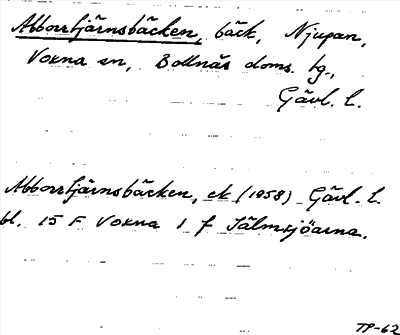 Abborrtjärnsbäcken, bäck, Njupan,
Voxna sn, Bollnäs doms. tg.,
Gävl. l.
Abborrtjärnsbäcken, ek (1958) Gävl. l.
bl. 15 F Voxna 1 f Sälmsjöarna.
TP-62